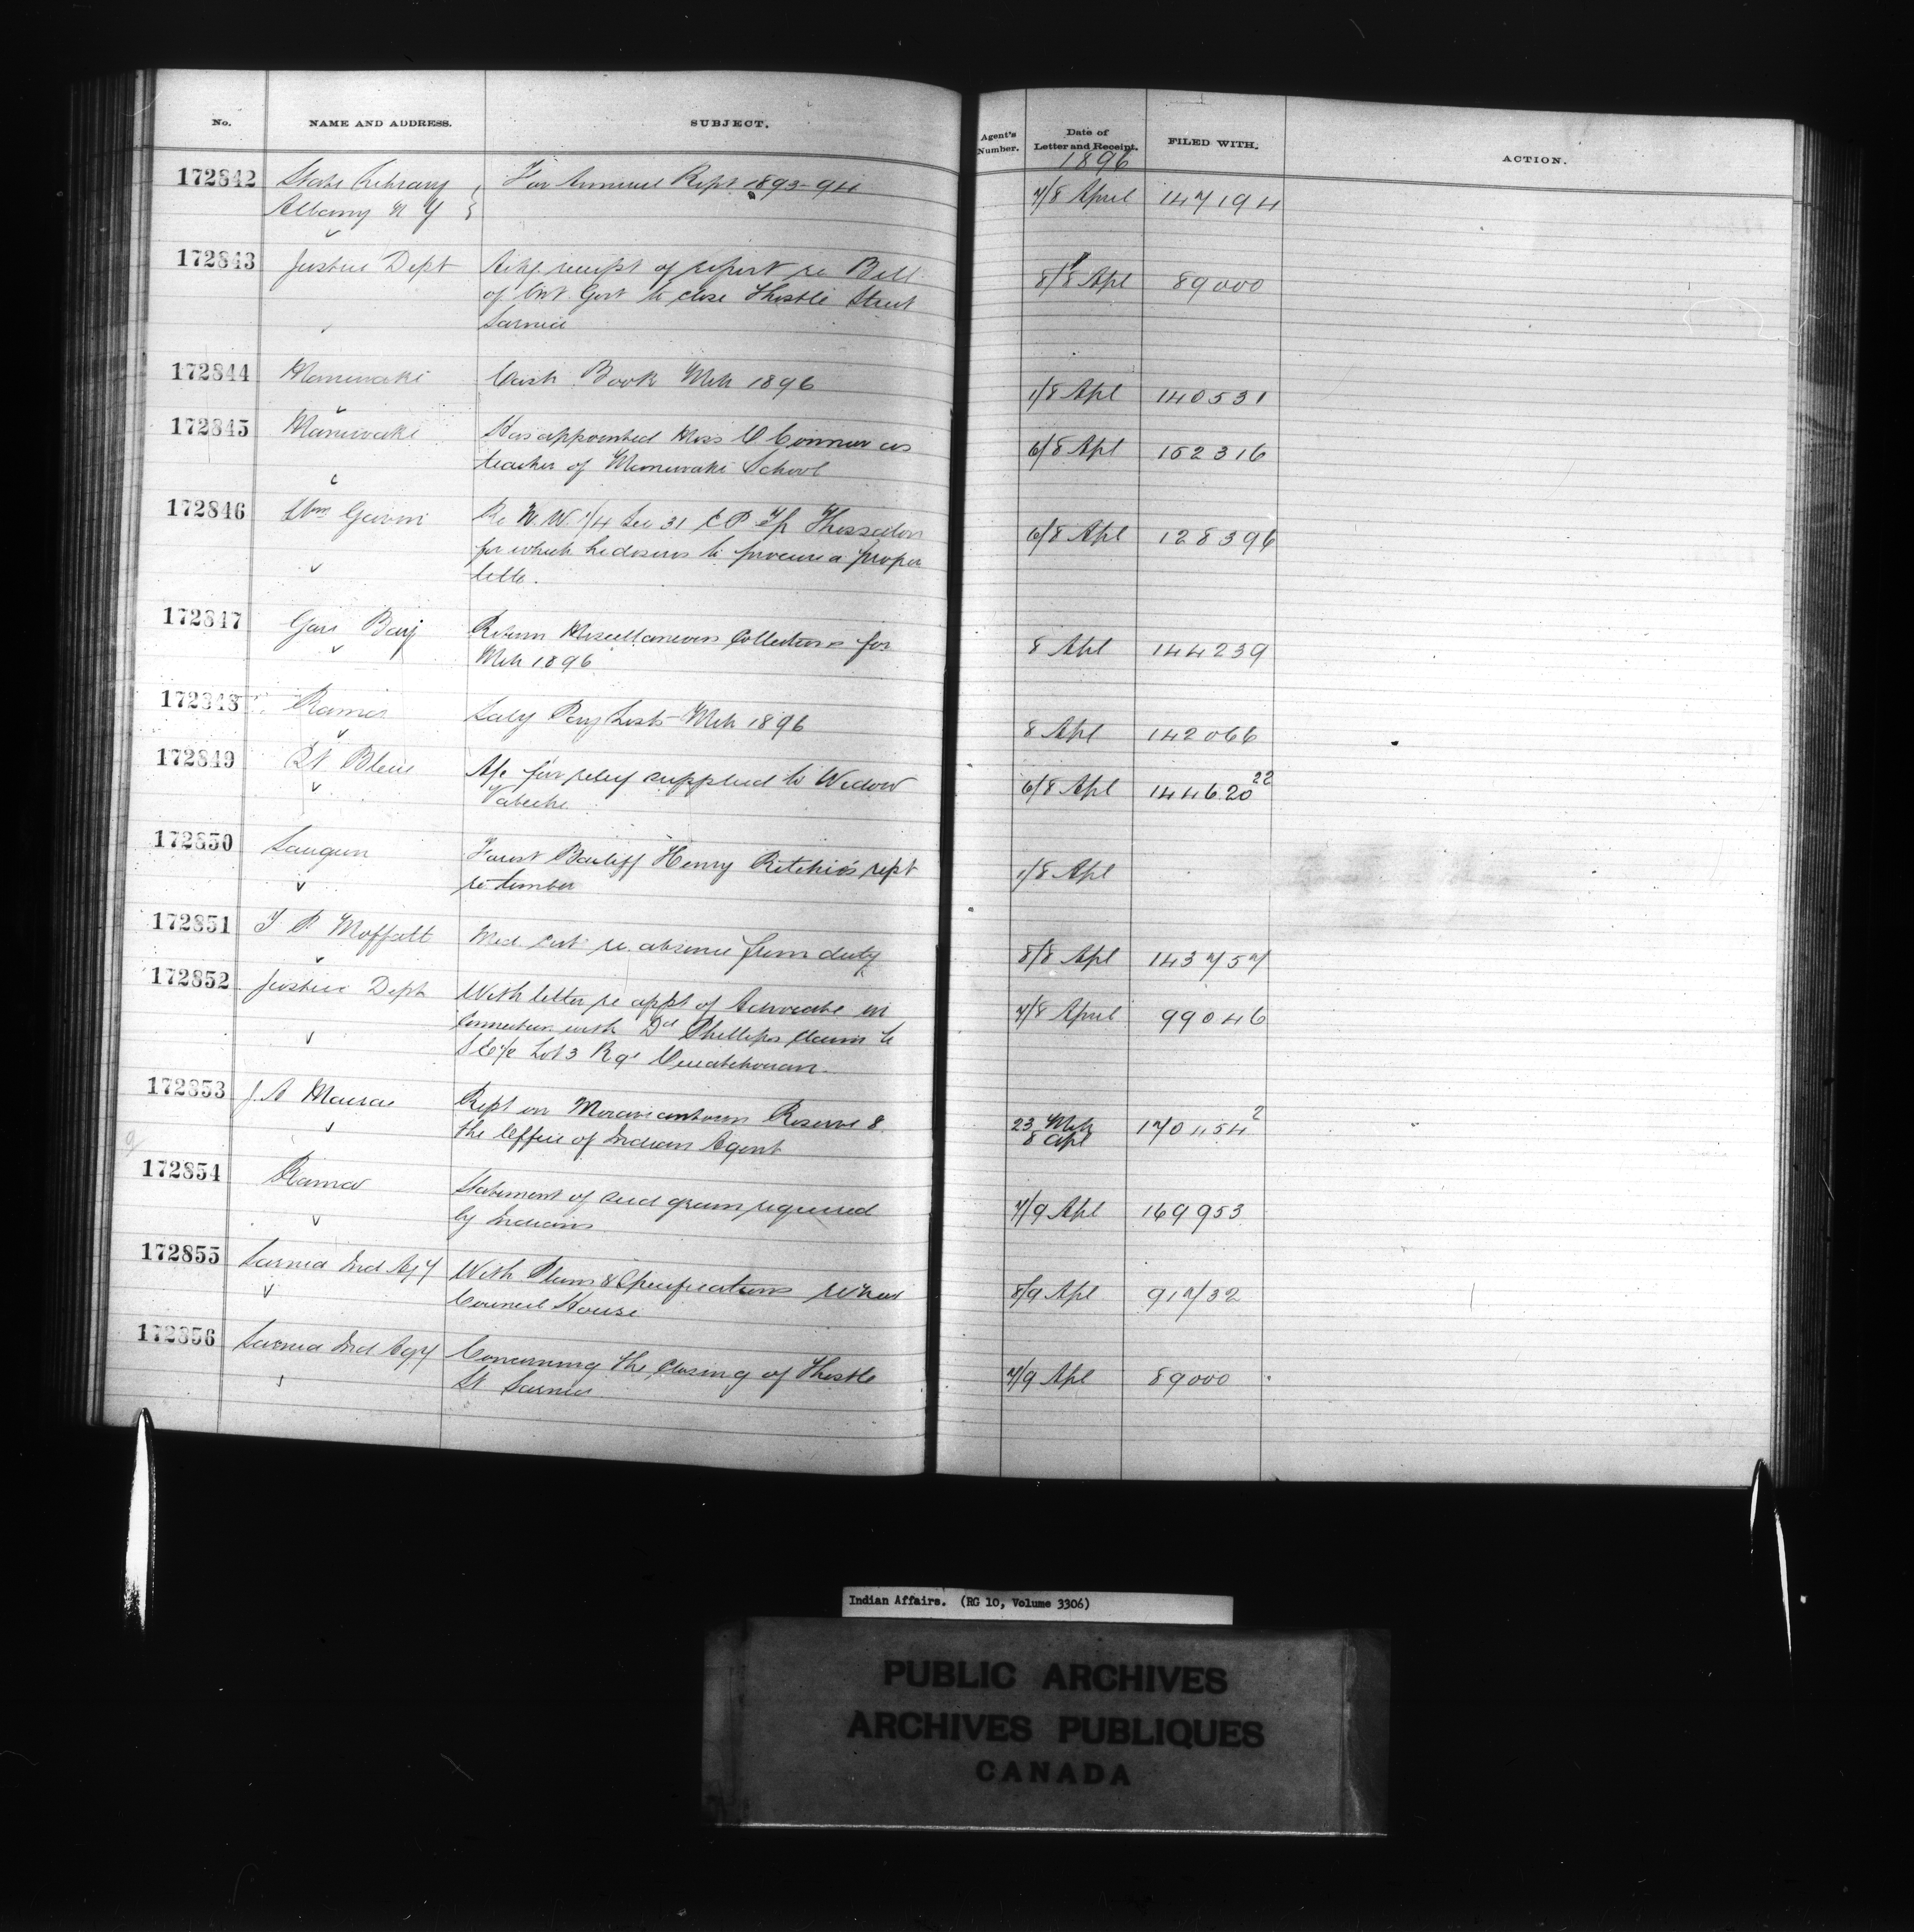 No. NAME AND ADDRESS. SUBJECT. Agent's Number. Date of Letter and Receipt. FILED WITH. ACTION.
1896
172842 State Library For Annual Rept 1893-94 7/8 April 147194
Albany N Y
172843 Justice Dept Ackg. receipt of report re Bill 8/8 Apl 89000
of Ont Govt to close Thistle Street
Sarnia
172844 Maniwaki Cash Book Mch 1896 1/8 Apl 140531
172845 Maniwaki Has appointed Miss O Connor as 6/8 Apl 152316
teacher of Maniwaki School
172846 Wm Re N. W. 1/4 Sec 31 Tp Thessalon 6/8 Apl 128396
for which he desires to procure a proper
title.
172847 Gore Bay Return Miscellaneous Collections for 8 Apl 144239
Mch 1896
172848 Rama Saly Pay Lists - Mch 1896 8 Apl 142066
172849 Pt Bleue A/c for relief supplied to Widow 6/8 Apl 144620 22
172850 Saugeen Forest Bailiff Henry Ritchie's rept 1/8 Apl
re timber
172851 T P Moffatt Med. Cert re absence from duty 8/8 Apl 143757
172852 Justice Dept With letter re appt of Advocate in 7/8 April 99046
connection with Dd Phillips claim to
Lot 3 Rg 1 Ouiatchouan
172853 J. A Macrae Rept on Moraviantown Reserve & 23 Mch 170454 2
the Office of Indian Agent 8 Apl
172854 Rama Statement of seed grain required 7/9 Apl 169953
by Indians
172855 Sarnia Ind Agy With Plans & Specifications re new 8/9 Apl 91732
Council House
172856 Sarnia Ind Agy Concerning the closing of Thistle 7/9 Apl 89000
St Sarnia
Indian Affairs. (RG 10, Volume 3306)
PUBLIC ARCHIVES
ARCHIVES PUBLIQUES
CANADA